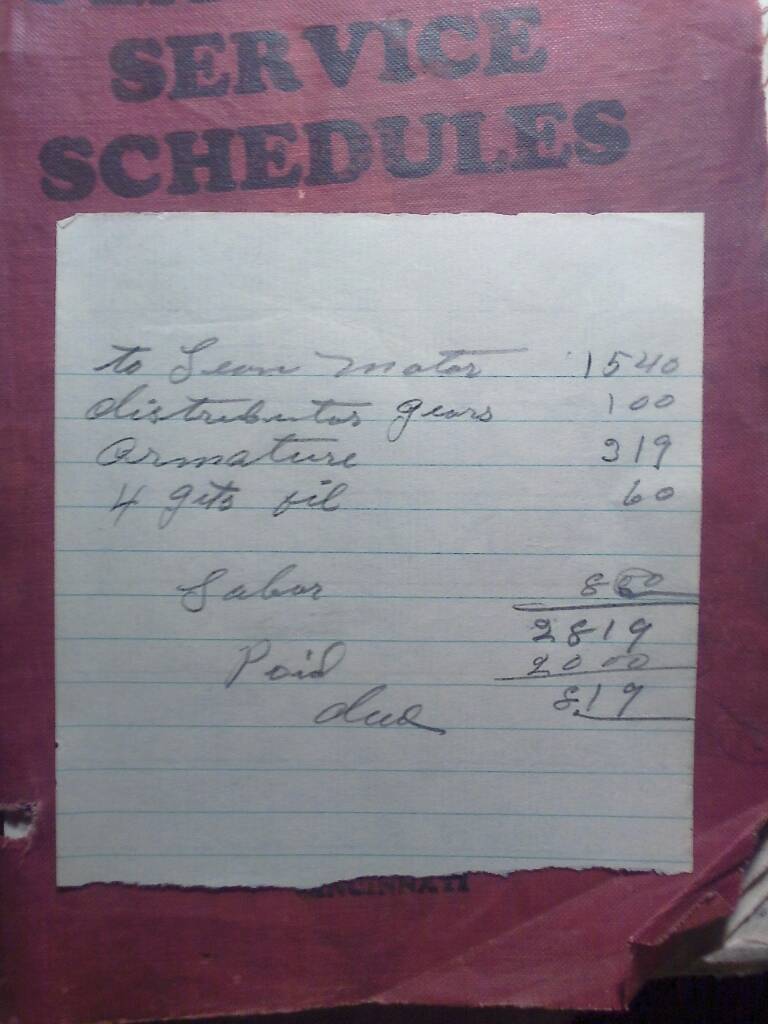 SERVICE
SCHEDULES
to Lean motor 1540
distributor gears 100
armature 319
4 qts oil 60
Labor 800
2819
Paid 2000
due 819
CINCINNATI